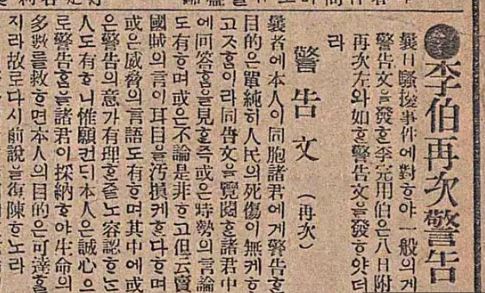 李伯再次警告
曩日騷擾事件에對ᄒᆞ야一般의게
警告文을發ᄒᆞᆫ李完用伯은八日附
再次左와如ᄒᆞᆫ警告文을發ᄒᆞ얏더
라
警告文 (再次)
曩者에本人이同胞諸君에게警告ᄒᆞᆫ
目的은單純히人民의死傷이無케ᄒᆞ
고ᄌᆞᄒᆞᆷ이라同告文을覽閱ᄒᆞᆫ諸君中
에回答ᄒᆞᆷ을見ᄒᆞᆫ즉或은時勢의言論
도有ᄒᆞ며或은不論是非ᄒᆞ고但云賣
國賊의言이耳目을汚損케ᄒᆞᆫ다ᄒᆞ며
或은威脅의言語도有ᄒᆞ며其中에或
은警告의意가有理ᄒᆞᆫ줄노容認ᄒᆞᄂᆞᆫ
人도有ᄒᆞ니惟願컨ᄃᆡ本人은誠心으
로警告ᄒᆞᆷ을諸君이採納ᄒᆞ야生命의
多數를救ᄒᆞ면本人의目的은可達ᄒᆞᆯ
지라故로다시前說을復陳ᄒᆞ노라